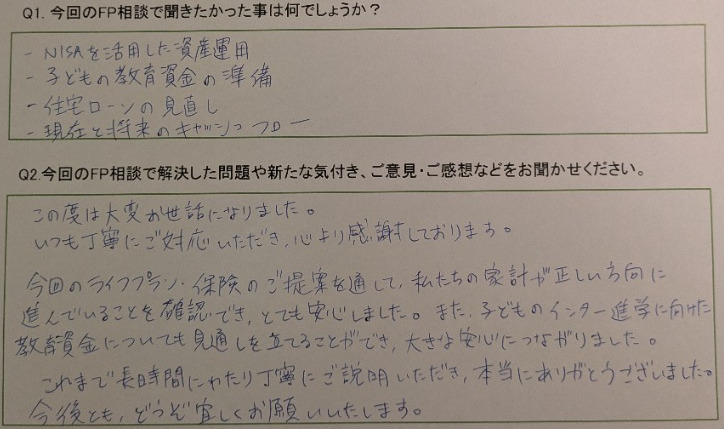 Q1. 今回のFP相談で聞きたかった事は何でしょうか？
- NISAを活用した資産運用
- 子どもの教育資金の準備
- 住宅ローンの見直し
- 現在と将来のキャッシュフロー
Q2.今回のFP相談で解決した問題や新たな気付き、ご意見・ご感想などをお聞かせください。
この度は大変お世話になりました。
いつも丁寧にご対応いただき、心より感謝しております。
今回のライフプラン・保険のご提案を通して、私たちの家計が正しい方向に
進んでいることを確認でき、とても安心しました。また、子どものインター進学に向けた
教育資金についても見通しを立てることができ、大きな安心につながりました。
これまで長時間にわたり丁寧にご説明いただき、本当にありがとうございました。
今後とも、どうぞ宜しくお願いいたします。